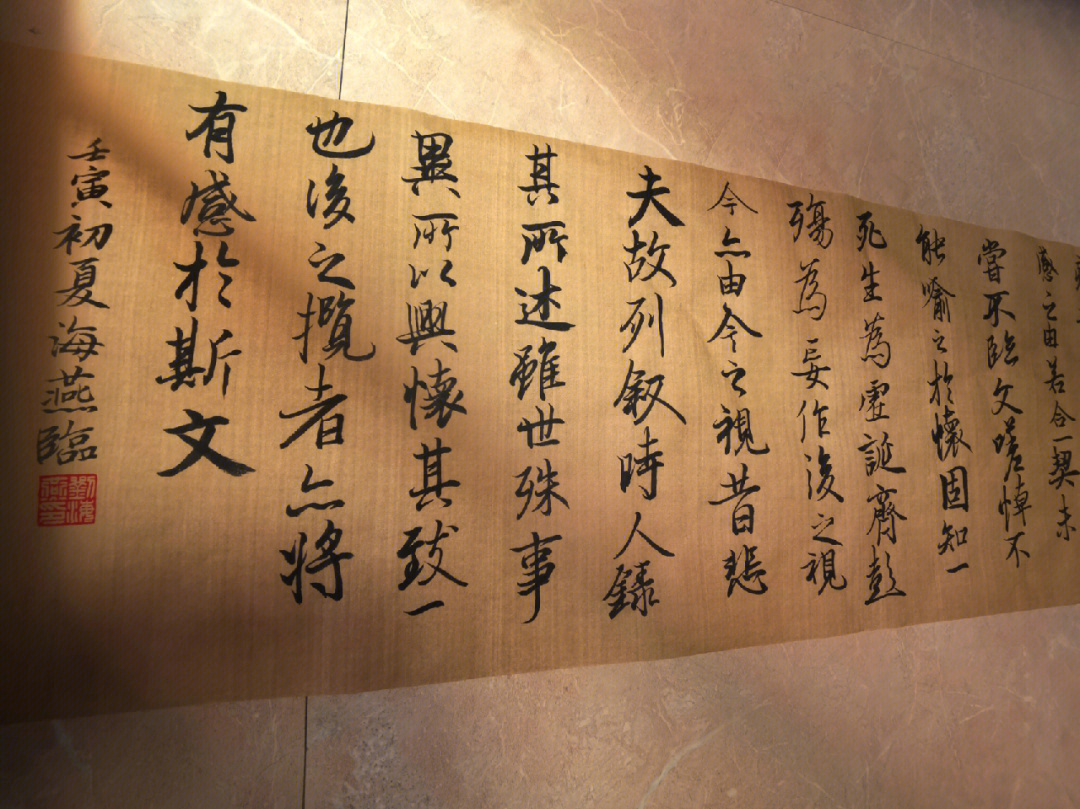 感之由若合一契未
嘗不臨文嗟悼不
能喻之於懷固知一
死生為虛誕齊彭
殤為妄作後之視
今亦由今之視昔悲
夫故列叙時人錄
其所述雖世殊事
異所以興懷其致一
也後之攬者亦将
有感於斯文
壬寅初夏海燕臨
劉海燕印